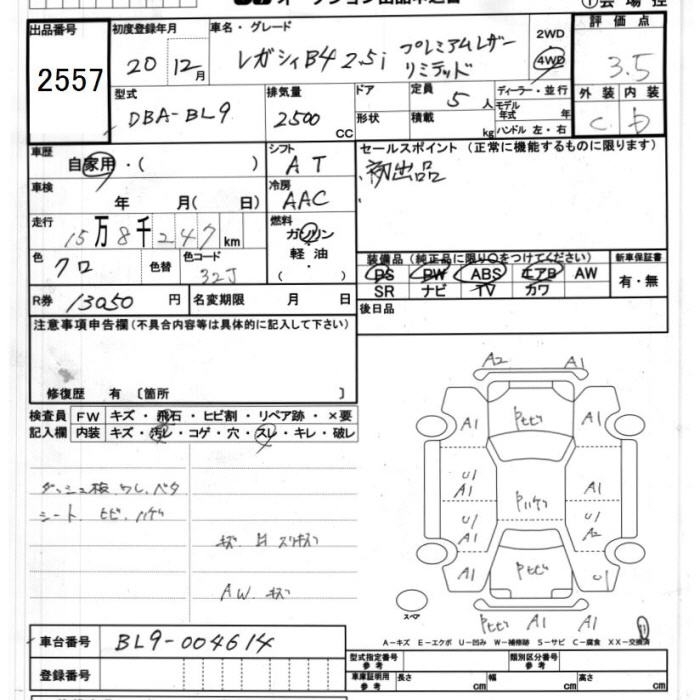 出品番号
2557
初度登録年月
20 12月
車名・グレード
レガシィB4 2.5i プレミアムレザーリミテッド
2WD
4WD
評価点
3.5
外装 内装
C
型式
DBA-BL9
排気量
2500 CC
ドア
形状
定員
5 人
積載
kg
ディーラー・並行
モデル年式 年
ハンドル 左・右
車歴
自家用・( )
シフト
AT
セールスポイント (正常に機能するものに限ります)
初出品
車検
年 月( 日)
冷房
AAC
走行
15万8千247km
燃料
ガソリン
軽油・
色
クロ
色替
色コード
32J
装備品 (純正品に限り○をつけてください)
PS PW ABS エアB AW
SR ナビ TV カワ
新車保証書
有・無
R券 13050 円
名変期限 月 日
後日品
注意事項申告欄 (不具合内容等は具体的に記入して下さい)
修復歴 有 〔箇所 〕
検査員記入欄
FW キズ・飛石・ヒビ割・リペア跡・×要
内装 キズ・汚レ・コゲ・穴・スレ・キレ・破レ
ダッシュ板 ワレ、ベタ
シート ヒビ、ハゲ
AW キズ
A2 A1
A1 A1
U1 A1
A1 U1
U1 U1
A1 A2
A1 U1
A1 A1
スペア
A-キズ E-エクボ U-凹み W-補修跡 S-サビ C-腐食 XX-交換済
車台番号
BL9-004614
登録番号
型式指定番号 参考
類別区分番号 参考
車庫証明用 参考
長さ cm 幅 cm 高さ cm